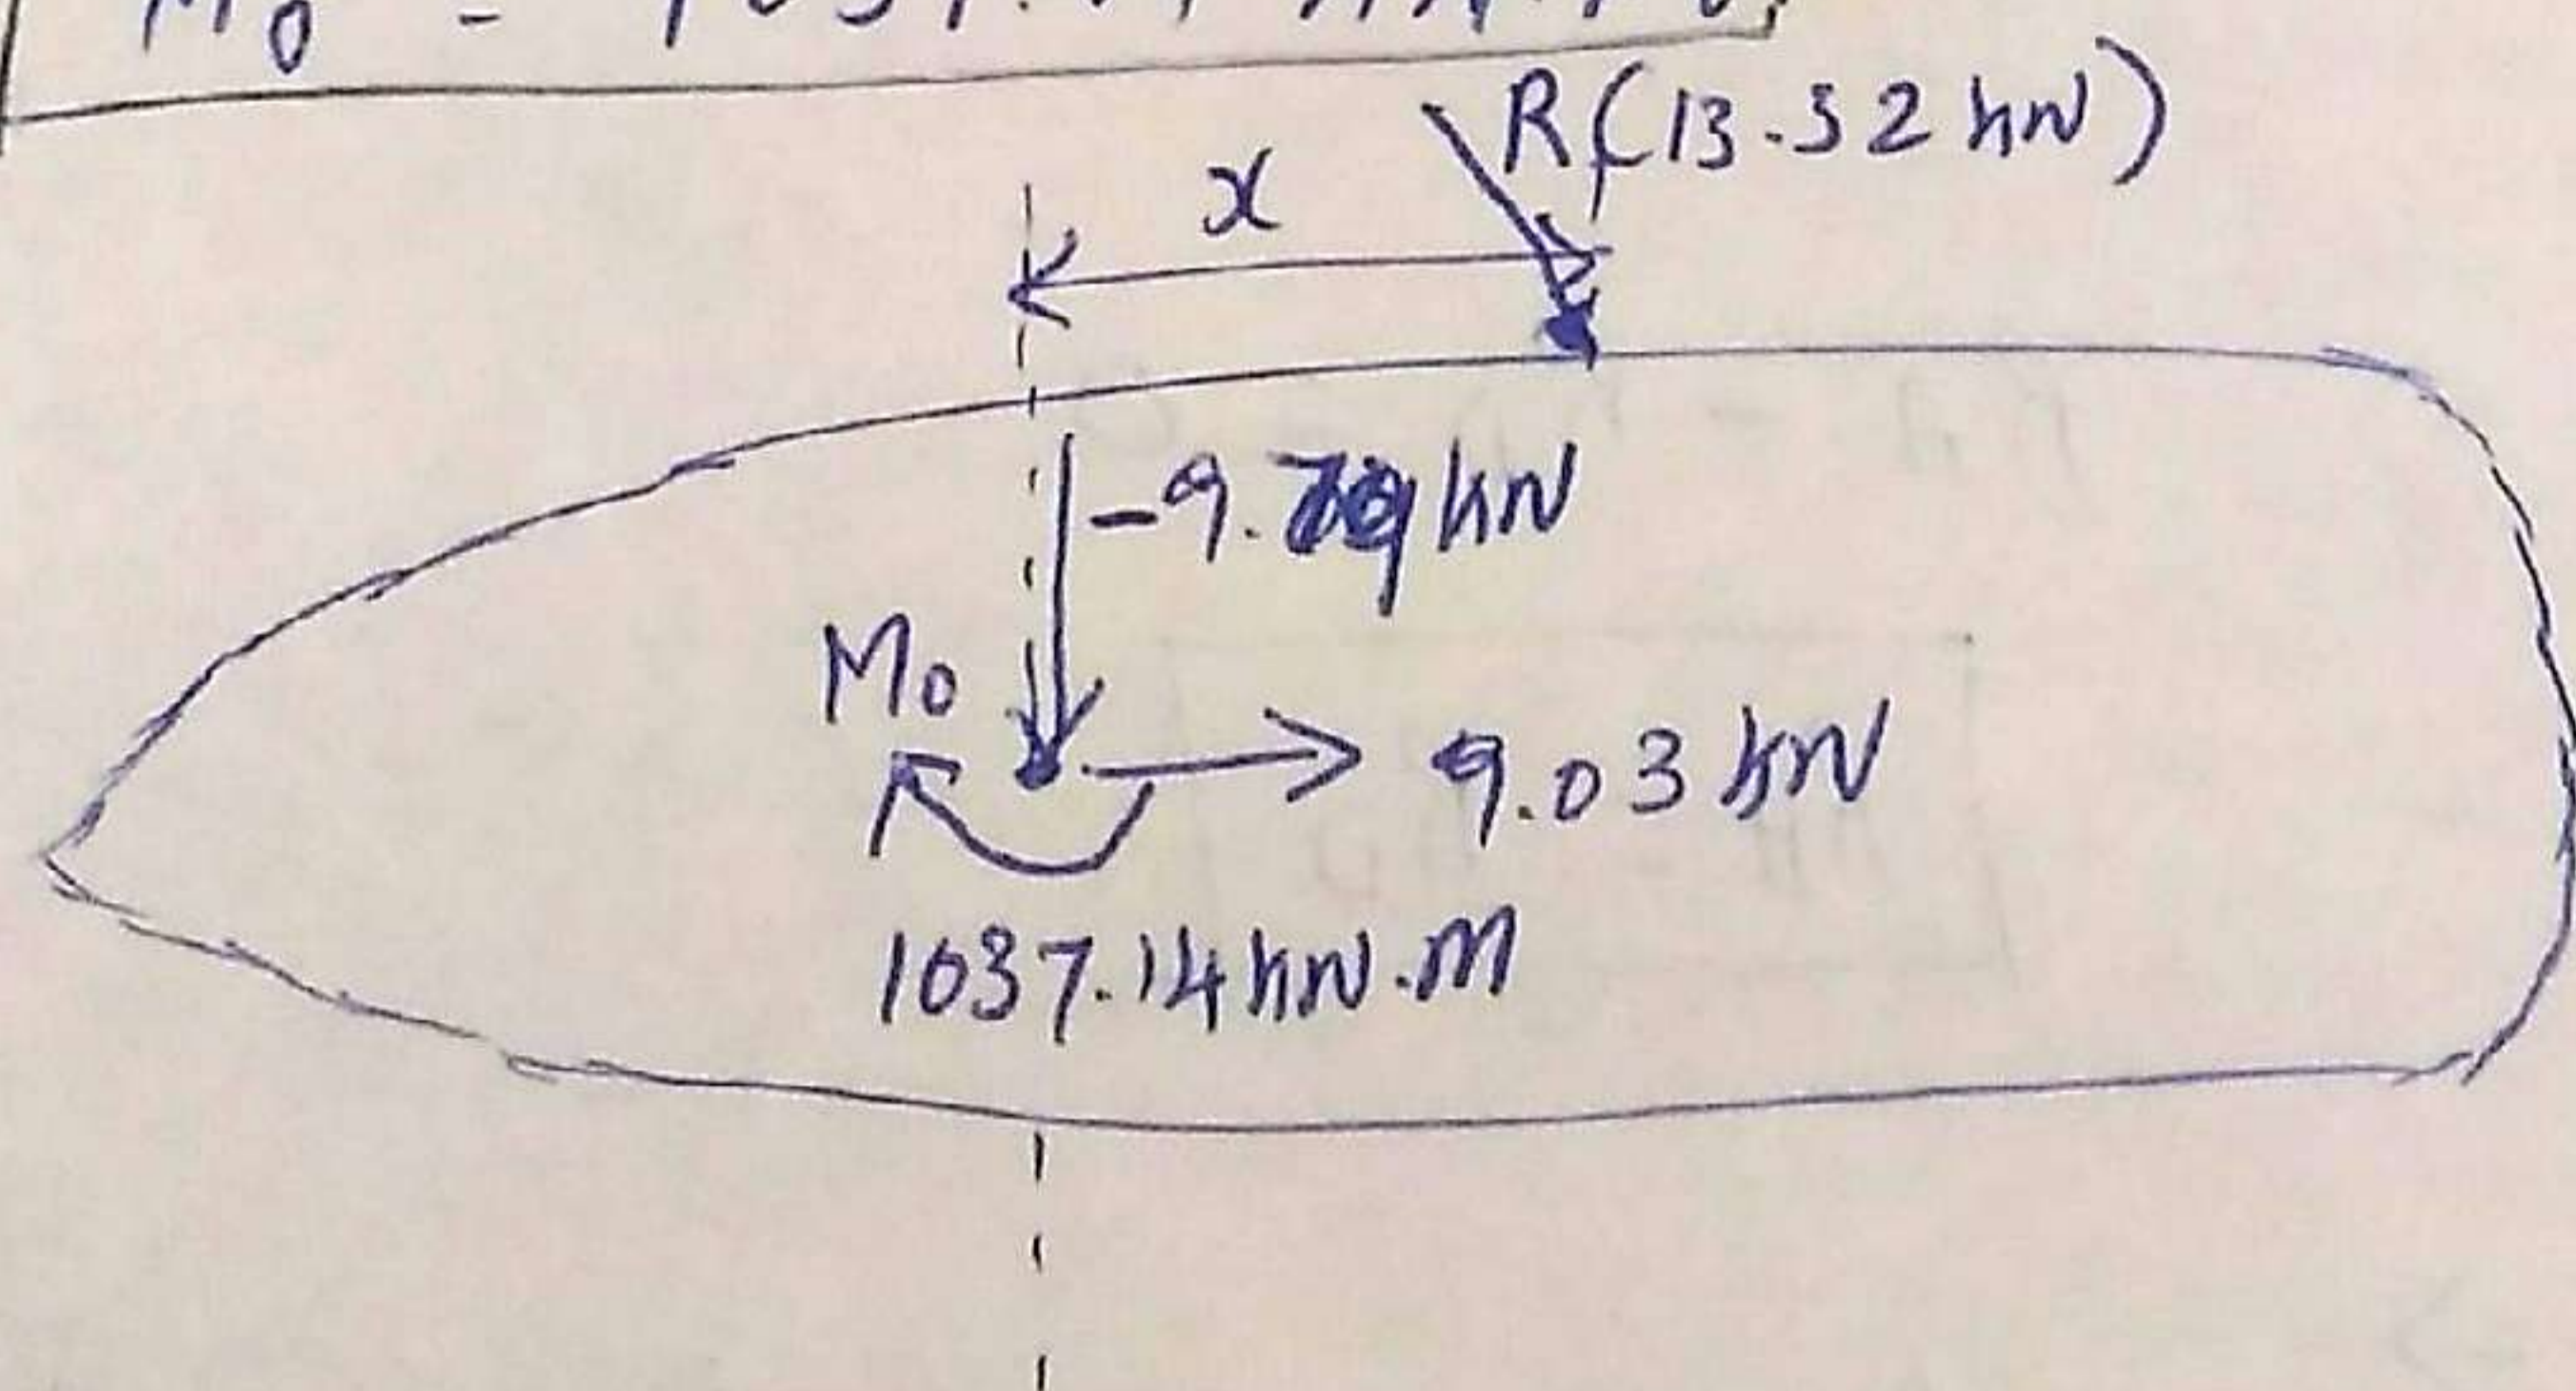 M0 =
R(13.32 kN)
x
-9.79 kN
M0
9.03 kN
1037.14 kN.m